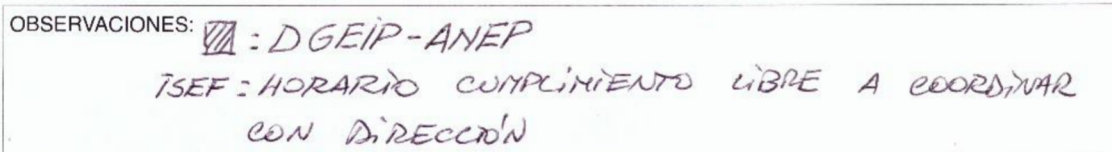 OBSERVACIONES: : DGEIP-ANEP
ISEF : HORARIO CUMPLIMIENTO LIBRE A COORDINAR
CON DIRECCIÓN